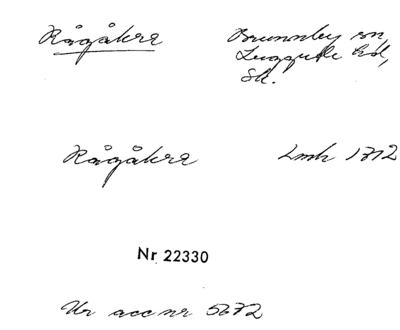 Rågåkra Brunnby sn,
Luggude hd,
Sk.
Rågåkra Lmh 1712
Nr 22330
Ur acc nr 5672